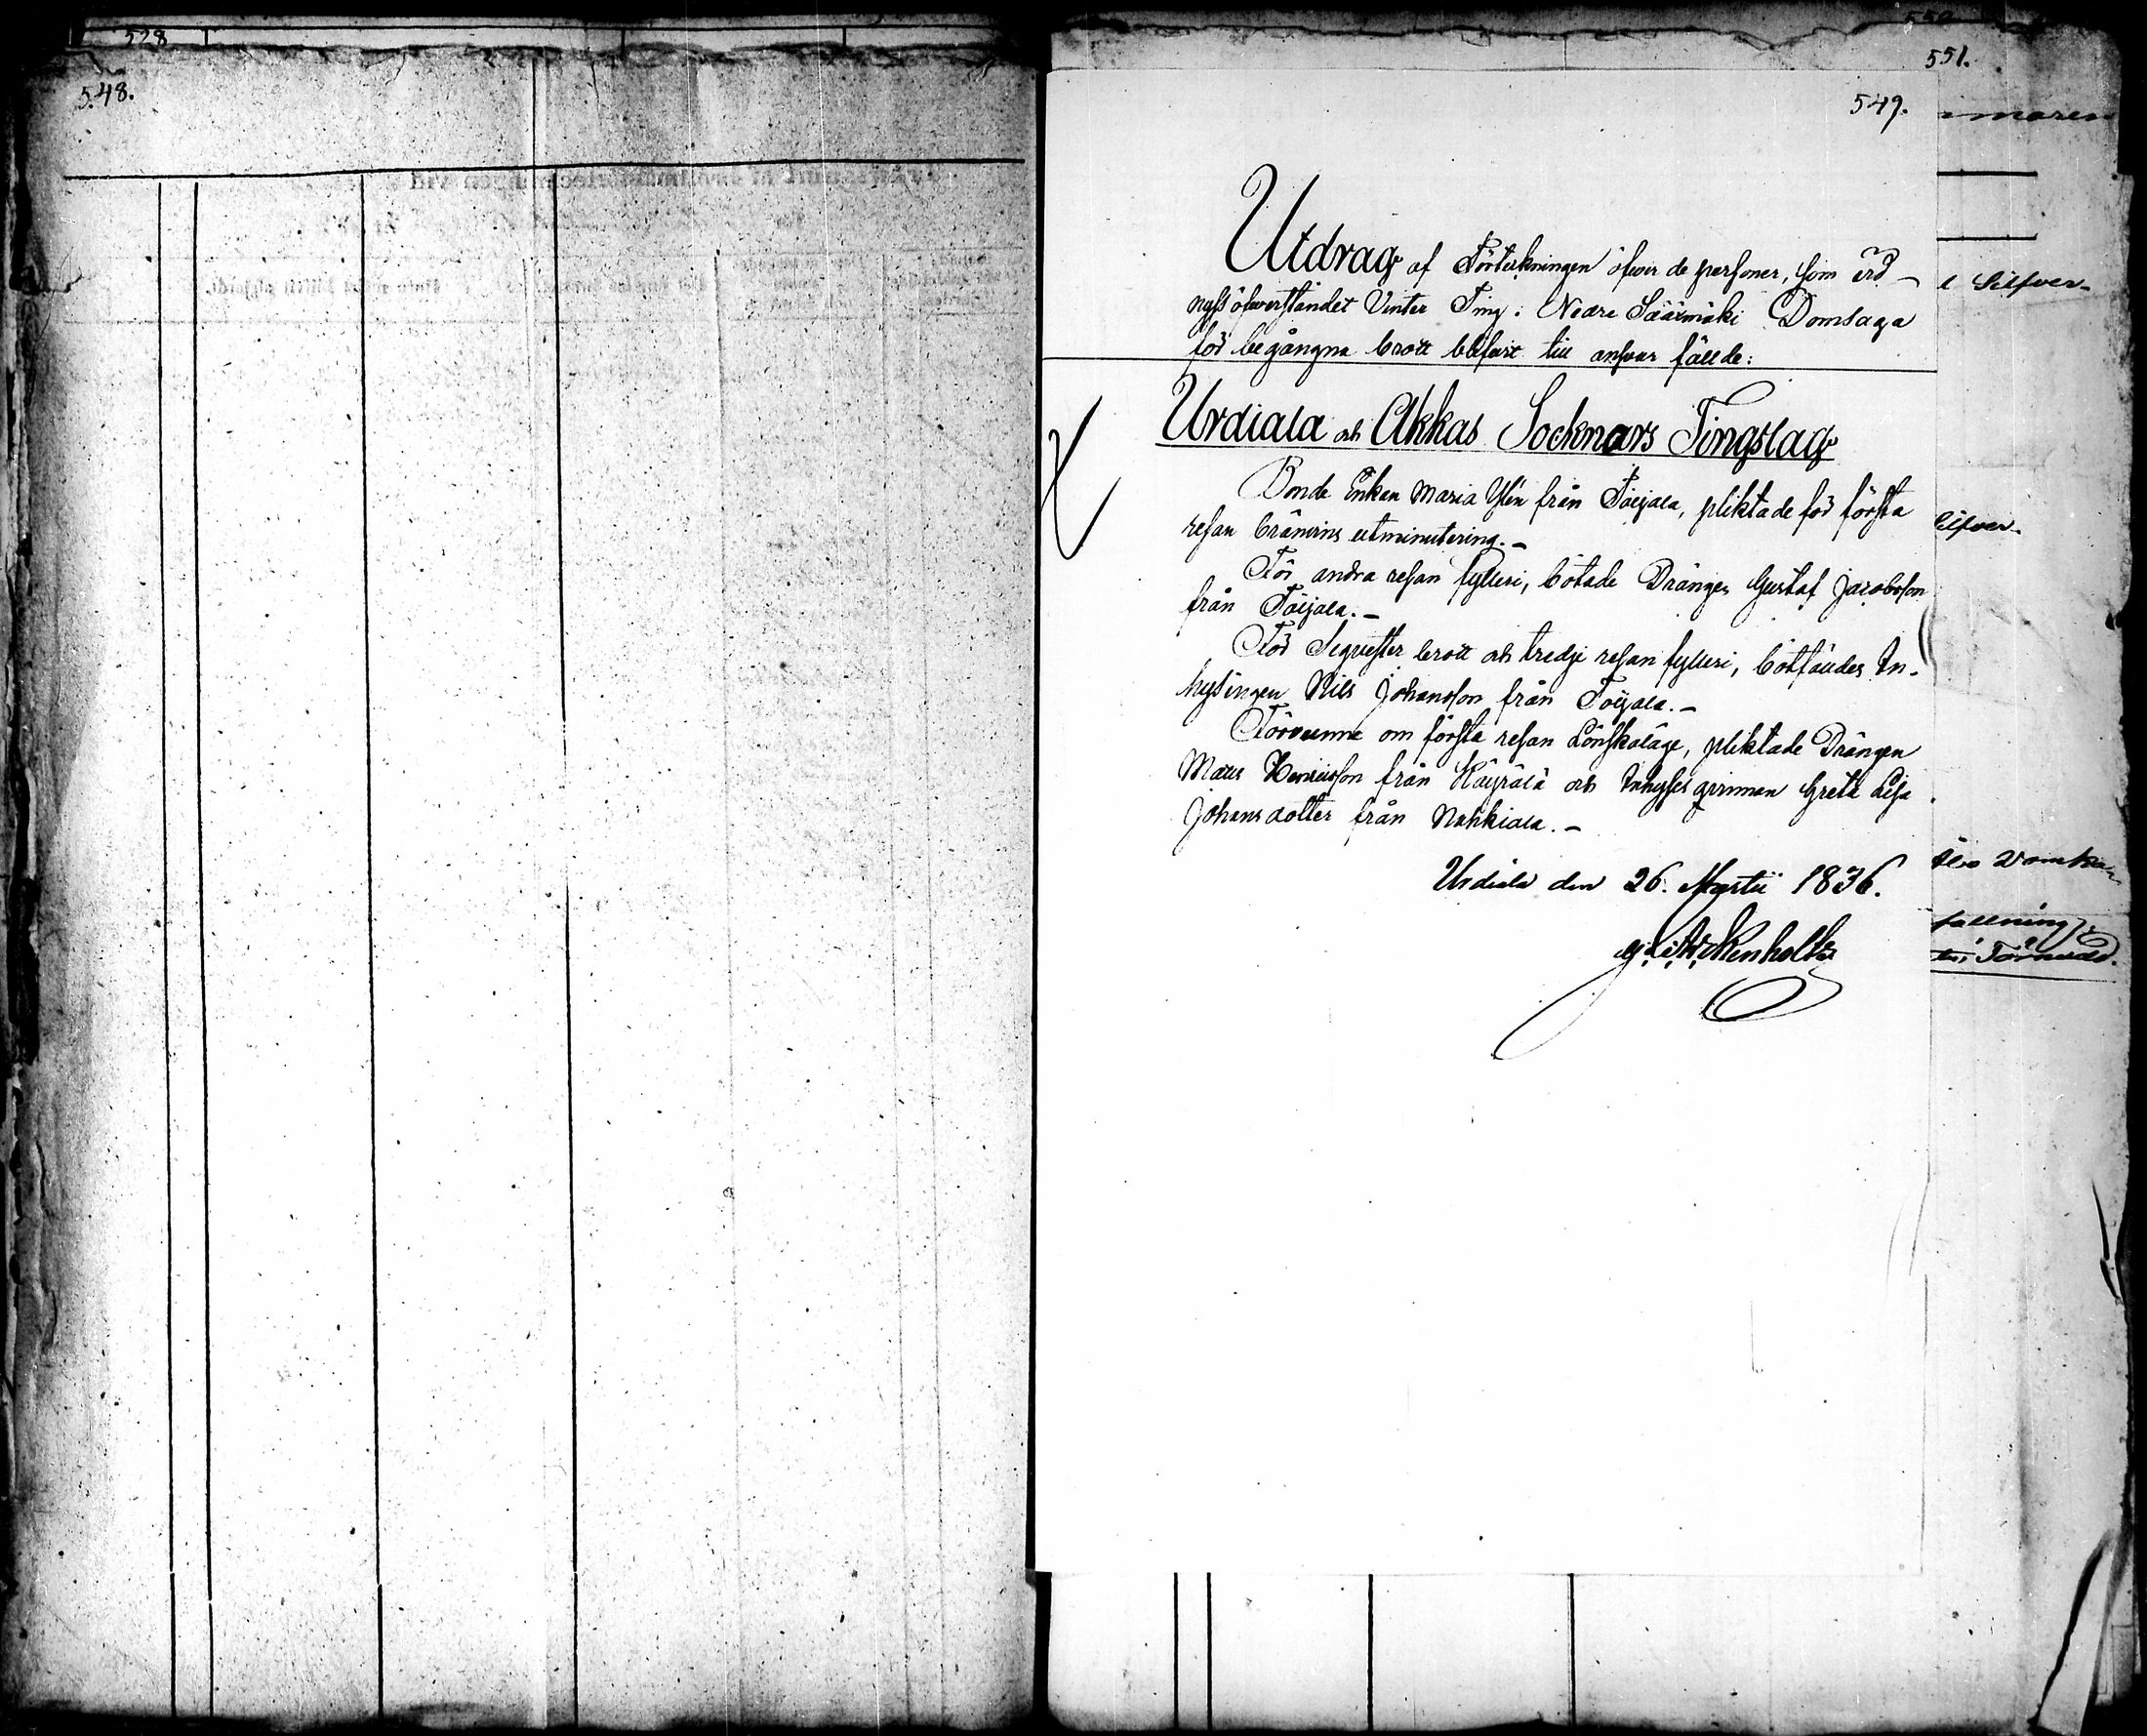 528
548.
550
551.
549.
Utdrag af Förteckningen öfver de personer, som vid
nyss öfverståndet Vinter Ting i Nedre Sääxmäki Domsaga
för begångna brott blifvit till answar fällde:
Urdiala och Akkas Socknars Tingslag
Bonde Enkan Maria Ylén från Toijala, pliktade för första
resan bränvins utminutering.
För andra resan fylleri, bötade Drängen Gustaf Jacobsson
från Toijala.
För Sequester brott och tredje resan fylleri, bötfäldes In-
hysingen Nils Johansson från Toijala.
Förvunne om första resan Lönskaläge, pliktade Drängen
Matts Henricsson från och Inhyses qvinnan Greta Lisa
Johansdotter från Nahkiala.
Urdiala den 26. Martii 1836.
maren
Silfver-
Silfver-
fallning